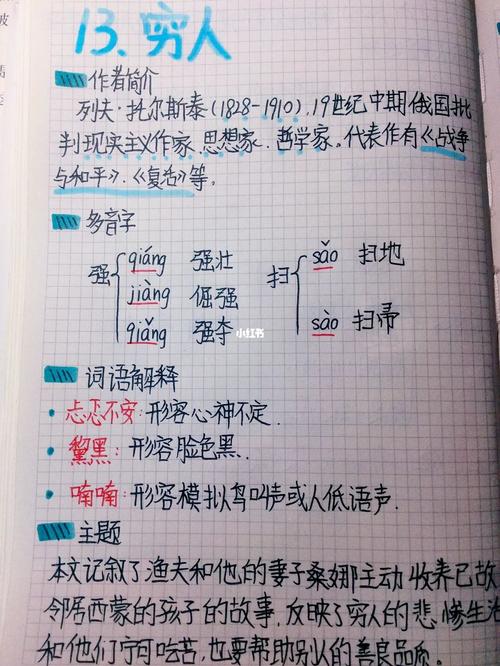 13、穷人
作者简介
列夫·托尔斯泰(1828-1910),19世纪中期俄国批
判现实主义作家、思想家、哲学家。代表作有《战争
与和平》、《复活》等。
多音字
强 qiáng 强壮 扫 sǎo 扫地
jiàng 倔强
qiǎng 强夺 sào 扫帚
小红书
词语解释
· 忐忑不安:形容心神不定.
· 黧黑:形容脸色黑.
· 喃喃:形容模拟鸟叫声或人低语声.
主题
本文记叙了渔夫和他的妻子桑娜主动收养已故
邻居西蒙的孩子的故事,反映了穷人的悲惨生活
和他们宁可吃苦,也要帮助别人的善良品质。